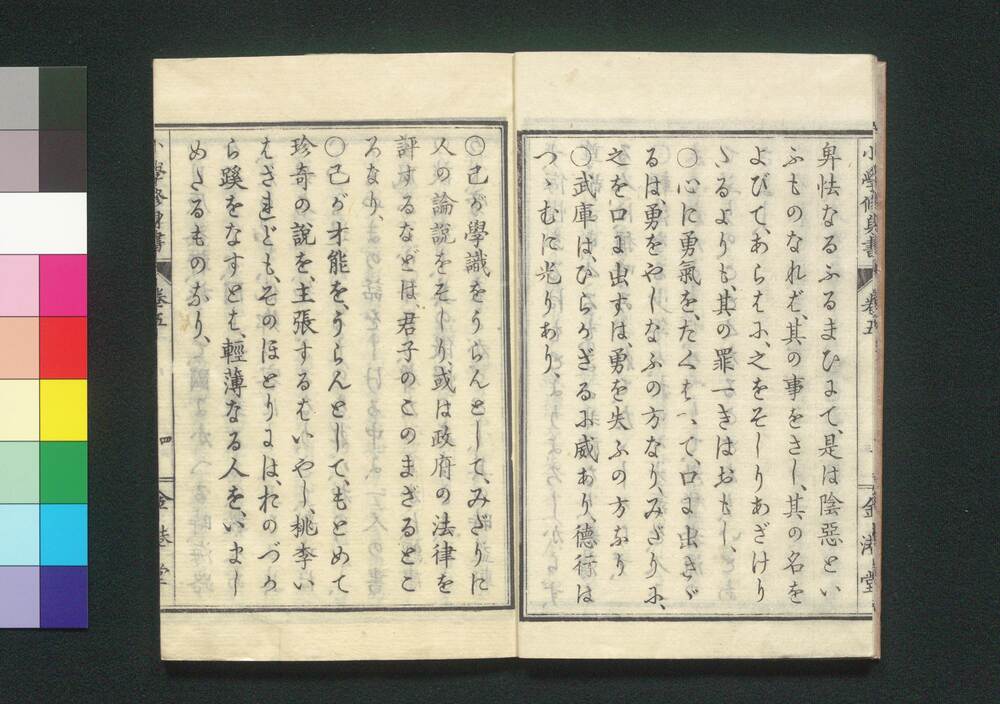 小學修身書 卷五 金港堂
卑怯なるふるまひにて、是は陰惡とい
ふものなれバ、其の事をさし、其の名を
よびて、あらはに、之をそしりあざけり
たるよりも、其の罪一きはおもし、
〇心に勇氣を、たくはへて、口に出さゞ
るは、勇をやしなふの方なり、みだりに、
之を口に出すは、勇を失ふの方なり
〇武庫は、ひらかざるに威あり、德行は
つゝむに光りあり、
〇己が學識をうらんとして、みだりに
人の論説をそしり、或は政府の法律を
評するなどは、君子のこのまざるとこ
ろなり、
〇己が才能を、うらんとして、もとめて
珍奇の説を、主張するはいやし、桃李い
はざれども、そのほとりには、おのづか
ら蹊をなすとは、輕薄なる人を、いまし
めたるものなり、
小學修身書 卷五 四 金港堂